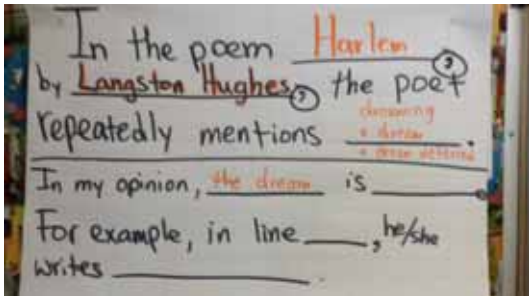 In the poem Harlem,
by Langston Hughes, the poet
dreaming
repeatedly mentions a dream.
a dream deferred
In my opinion, the dream is ______.
For example, in line ____, he/she
writes ______________.